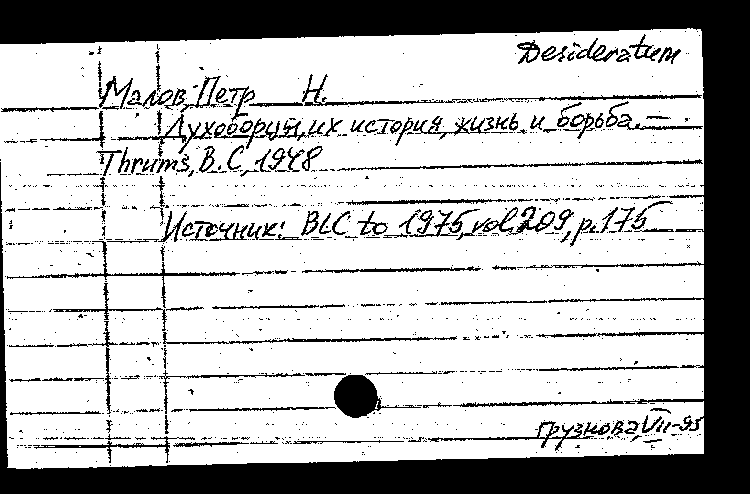 Desideratum
Малов, Петр Н.
Духоборцы, их история, жизнь и борьба. —
Thrums, B.C., 1948
Источник: BLC to 1975, vol. 209, p. 175
Грузнова, VII-95